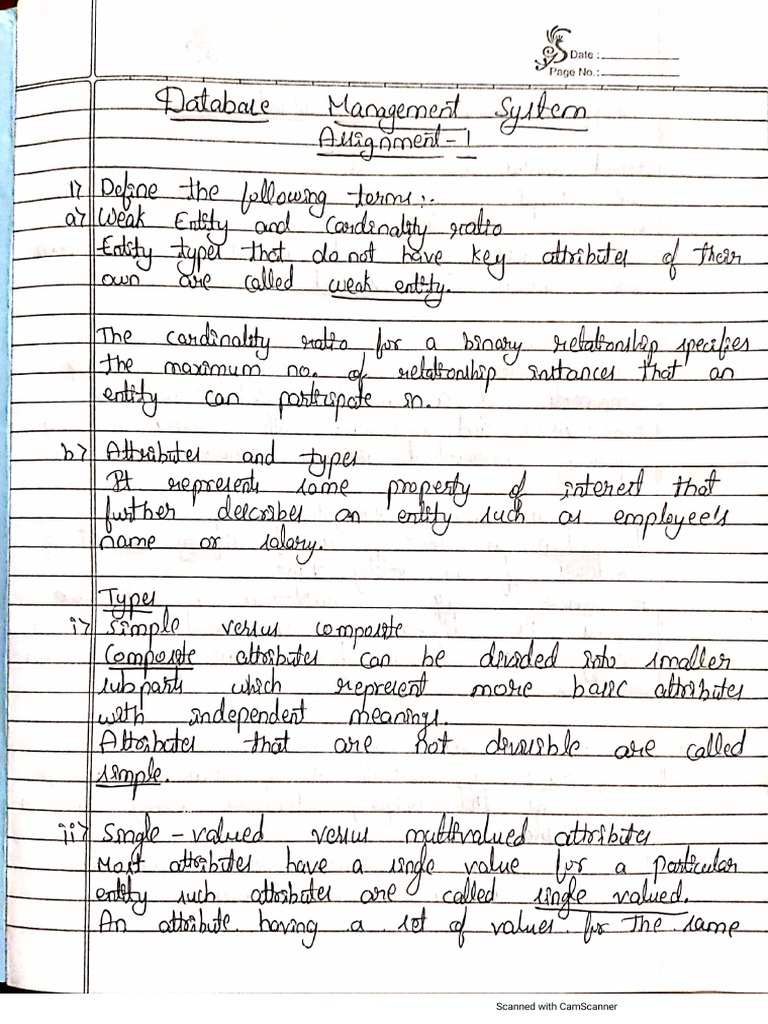 Date :
Page No.:
Database Management System
Assignment - 1
1> Define the following terms:-
a> Weak Entity and cardinality ratio
Entity types that do not have key attributes of their
own are called weak entity.
The cardinality ratio for a binary relationship specifies
the maximum no. of relationship instances that an
entity can participate in.
b> Attributes and types
It represents some property of interest that
further describes an entity such as employee's
name or salary.
Types
i> Simple versus composite
Composite attributes can be divided into smaller
subparts which represent more basic attributes
with independent meanings.
Attributes that are not divisible are called
simple.
ii> Single - valued versus multivalued attributes
Most attributes have a single value for a particular
entity such attributes are called single valued.
An attribute having a set of values for the same
Scanned with CamScanner